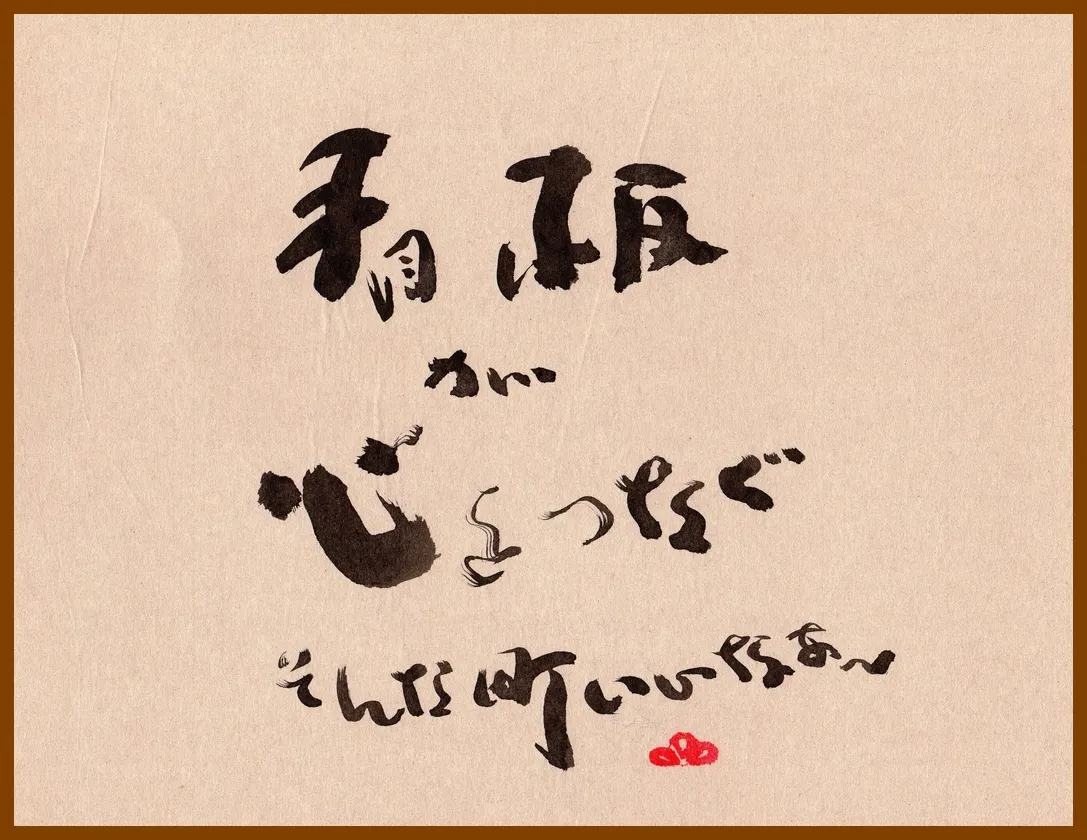 看板
がい
心をつなぐ
そんな町いいなあ〜